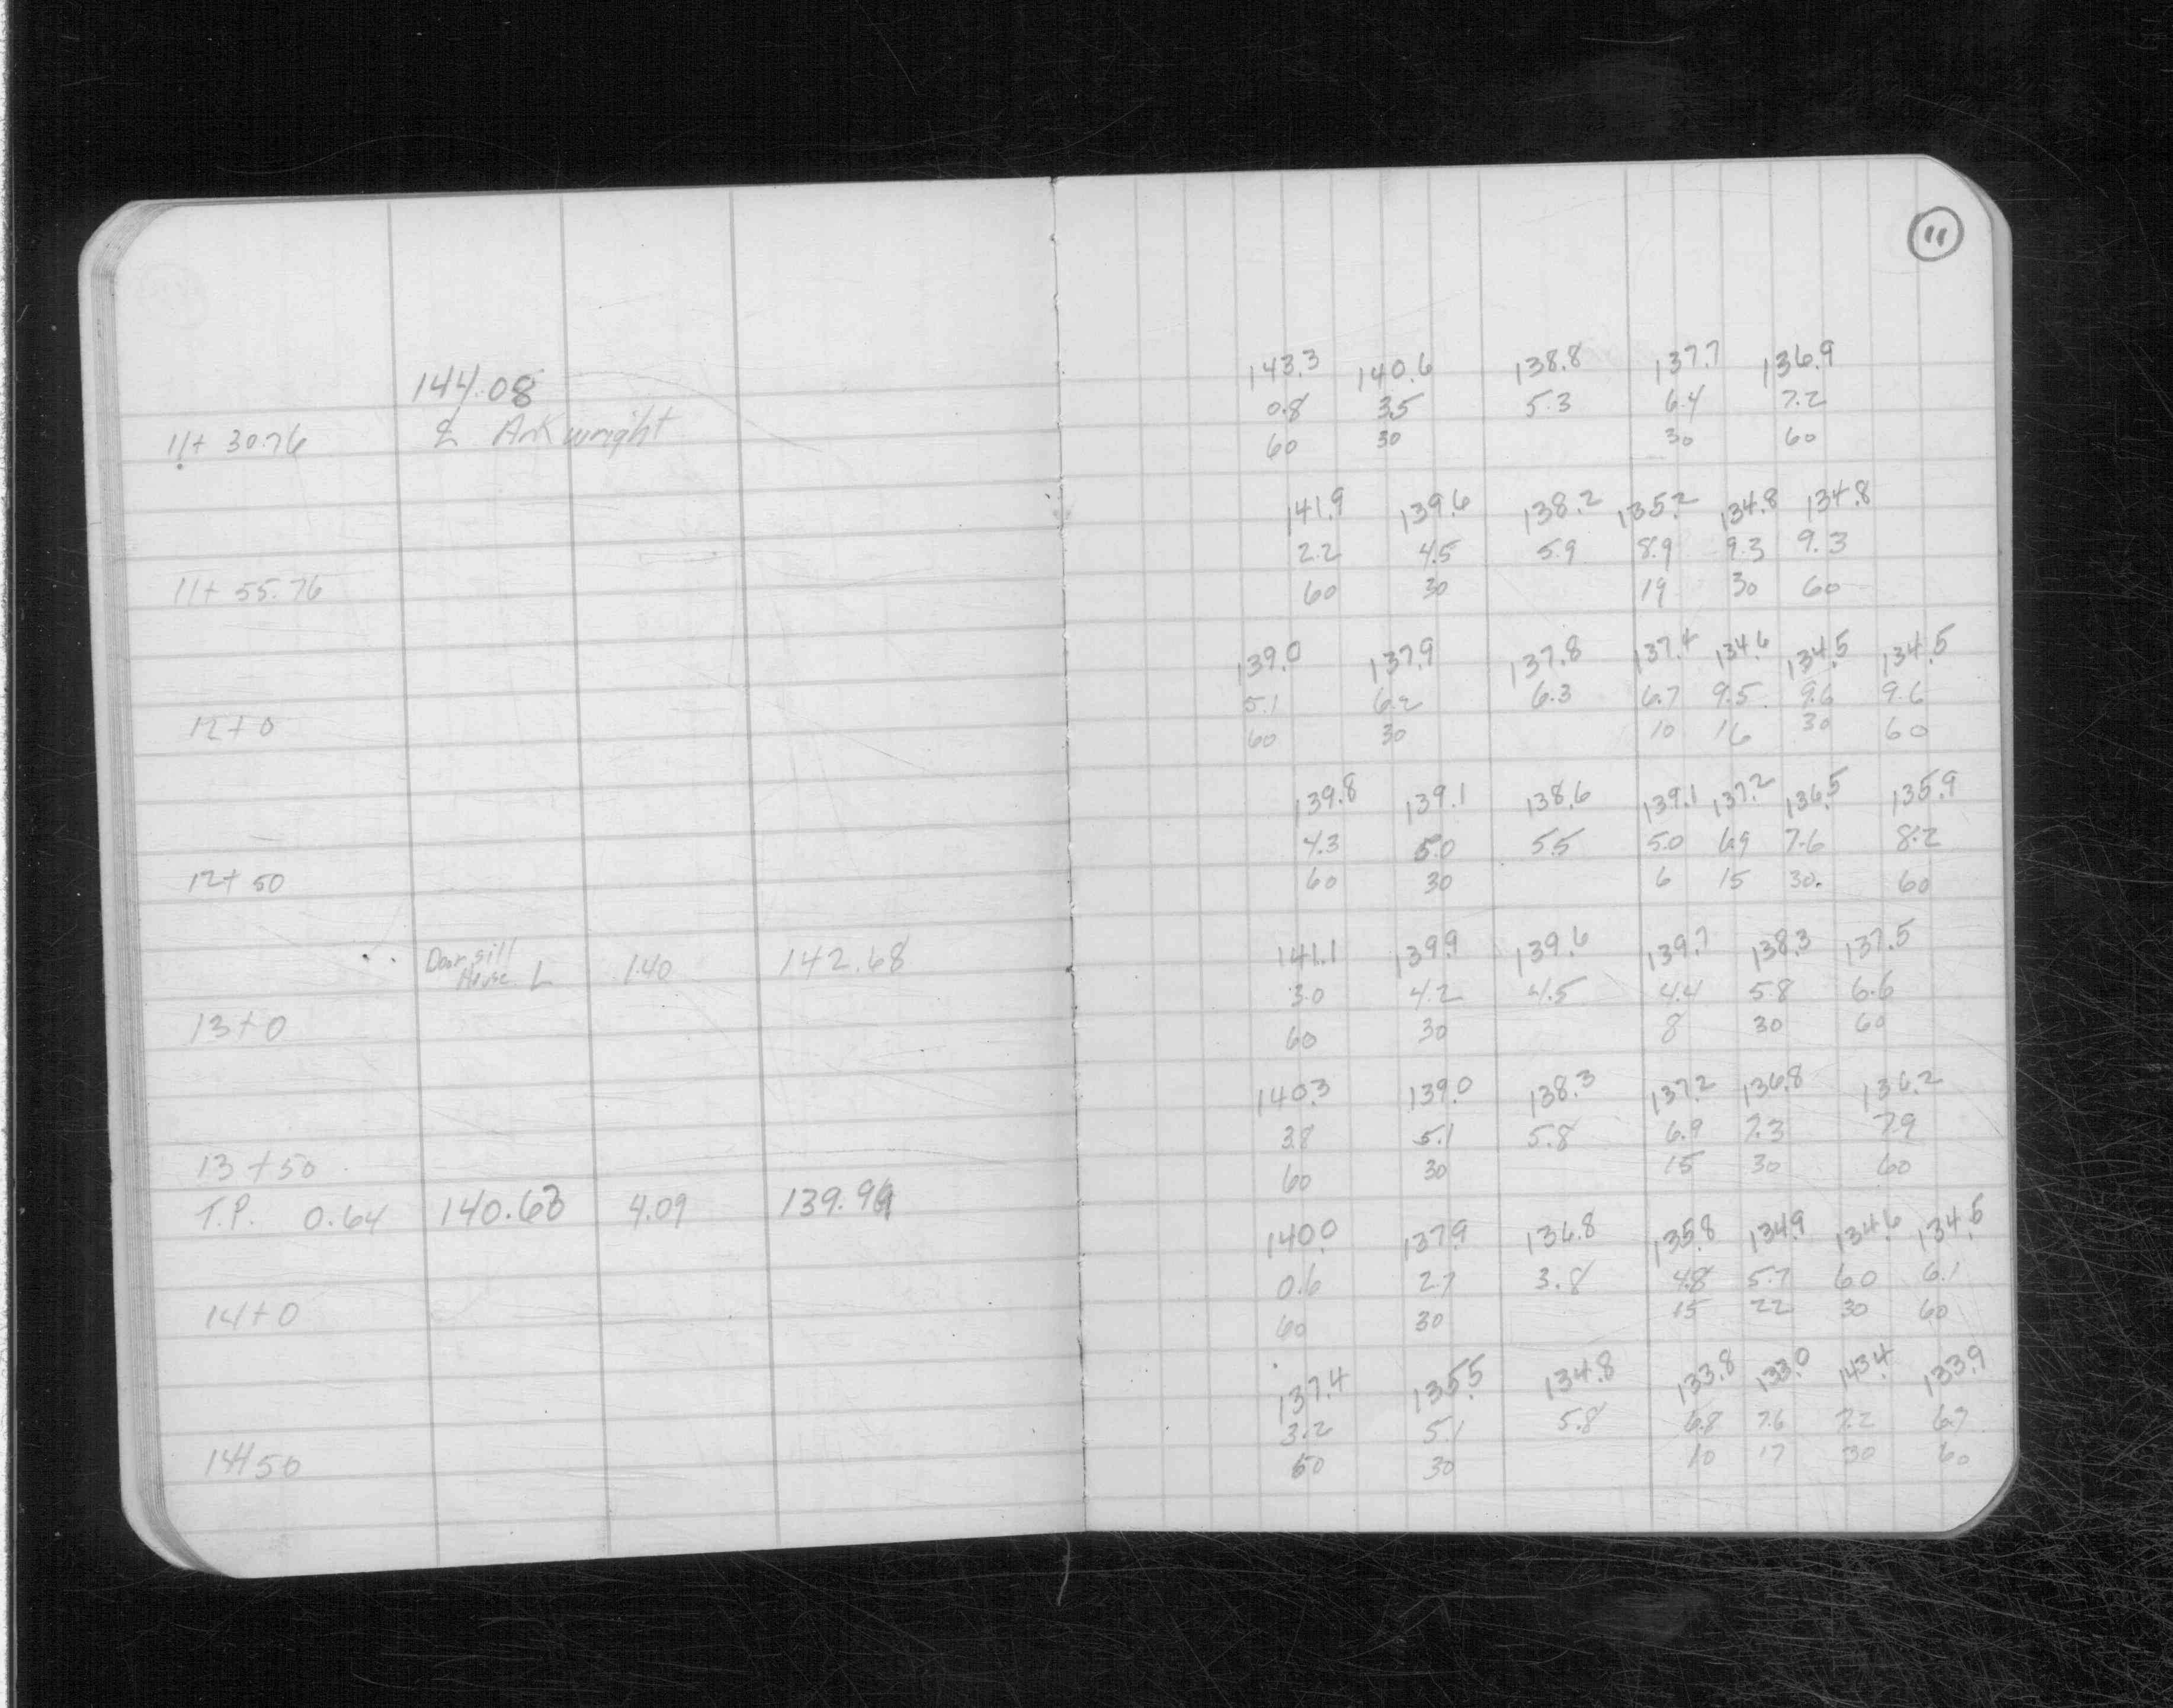 11
144.08
11+ 30.76 ℄ Arkwright
143.3 140.6 138.8 137.7 136.9
0.8 3.5 5.3 6.4 7.2
60 30 30 60
141.9 139.6 138.2 135.2 134.8 134.8
2.2 4.5 5.9 8.9 9.3 9.3
11+ 55.76 60 30 19 30 60
139.0 137.9 137.8 137.4 134.6 134.5 134.5
5.1 6.2 6.3 6.7 9.5 9.6 9.6
12+0 60 30 10 16 30 60
139.8 139.1 138.6 139.1 137.2 136.5 135.9
4.3 5.0 5.5 5.0 6.9 7.6 8.2
12+50 60 30 6 15 30. 60
Door sill
House L 1.40 142.68
141.1 139.9 139.6 139.7 138.3 137.5
3.0 4.2 4.5 4.4 5.8 6.6
13+0 60 30 8 30 60
140.3 139.0 138.3 137.2 136.8 136.2
3.8 5.1 5.8 6.9 7.3 7.9
13+50 60 30 15 30 60
T.P. 0.64 140.63 4.09 139.99
140.0 137.9 136.8 135.8 134.9 134.6 134.5
0.6 2.7 3.8 4.8 5.7 6.0 6.1
14+0 60 30 15 22 30 60
137.4 135.5 134.8 133.8 133.0 143.4 133.9
3.2 5.1 5.8 6.8 7.6 7.2 6.7
14+50 60 30 10 17 30 60